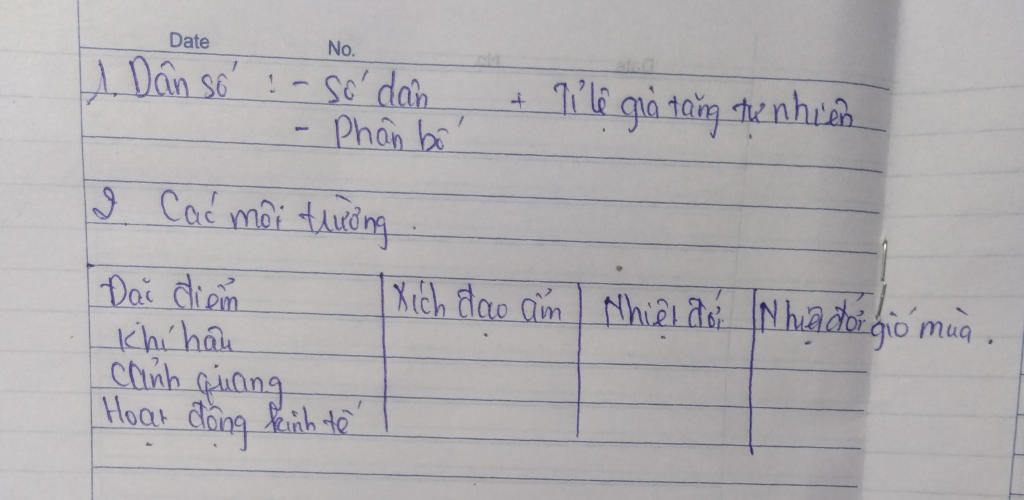 Date No.
1. Dân số : - Số dân + Tỉ lệ gia tăng tự nhiên
- Phân bố
2 Các môi trường.
Đặc điểm Xích đạo ẩm Nhiệt đới Nhiệt đới gió mùa.
Khí hậu
Cảnh quang
Hoạt động kinh tế